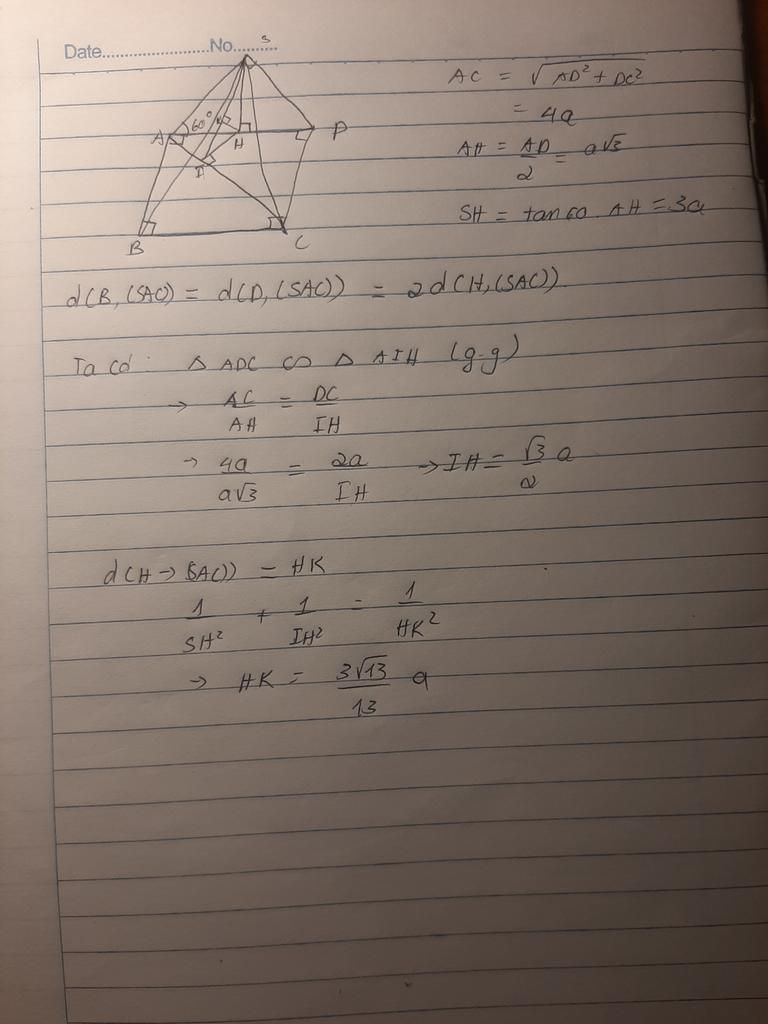 Date........................No..........
S
A 60° K H D
I
B C
AC = √(AD² + DC²)
= 4a
AH = AD/2 = a√3
SH = tan 60 AH = 3a
d(B, (SAC) = d(D, (SAC)) = 2d(H, (SAC))
Ta có: Δ ADC ∽ Δ AIH (g-g)
→ AC/AH = DC/IH
→ 4a/a√3 = 2a/IH → IH = √3/2 a
d(H → (SAC)) = HK
1/SH² + 1/IH² = 1/HK²
→ HK = 3√13/13 a